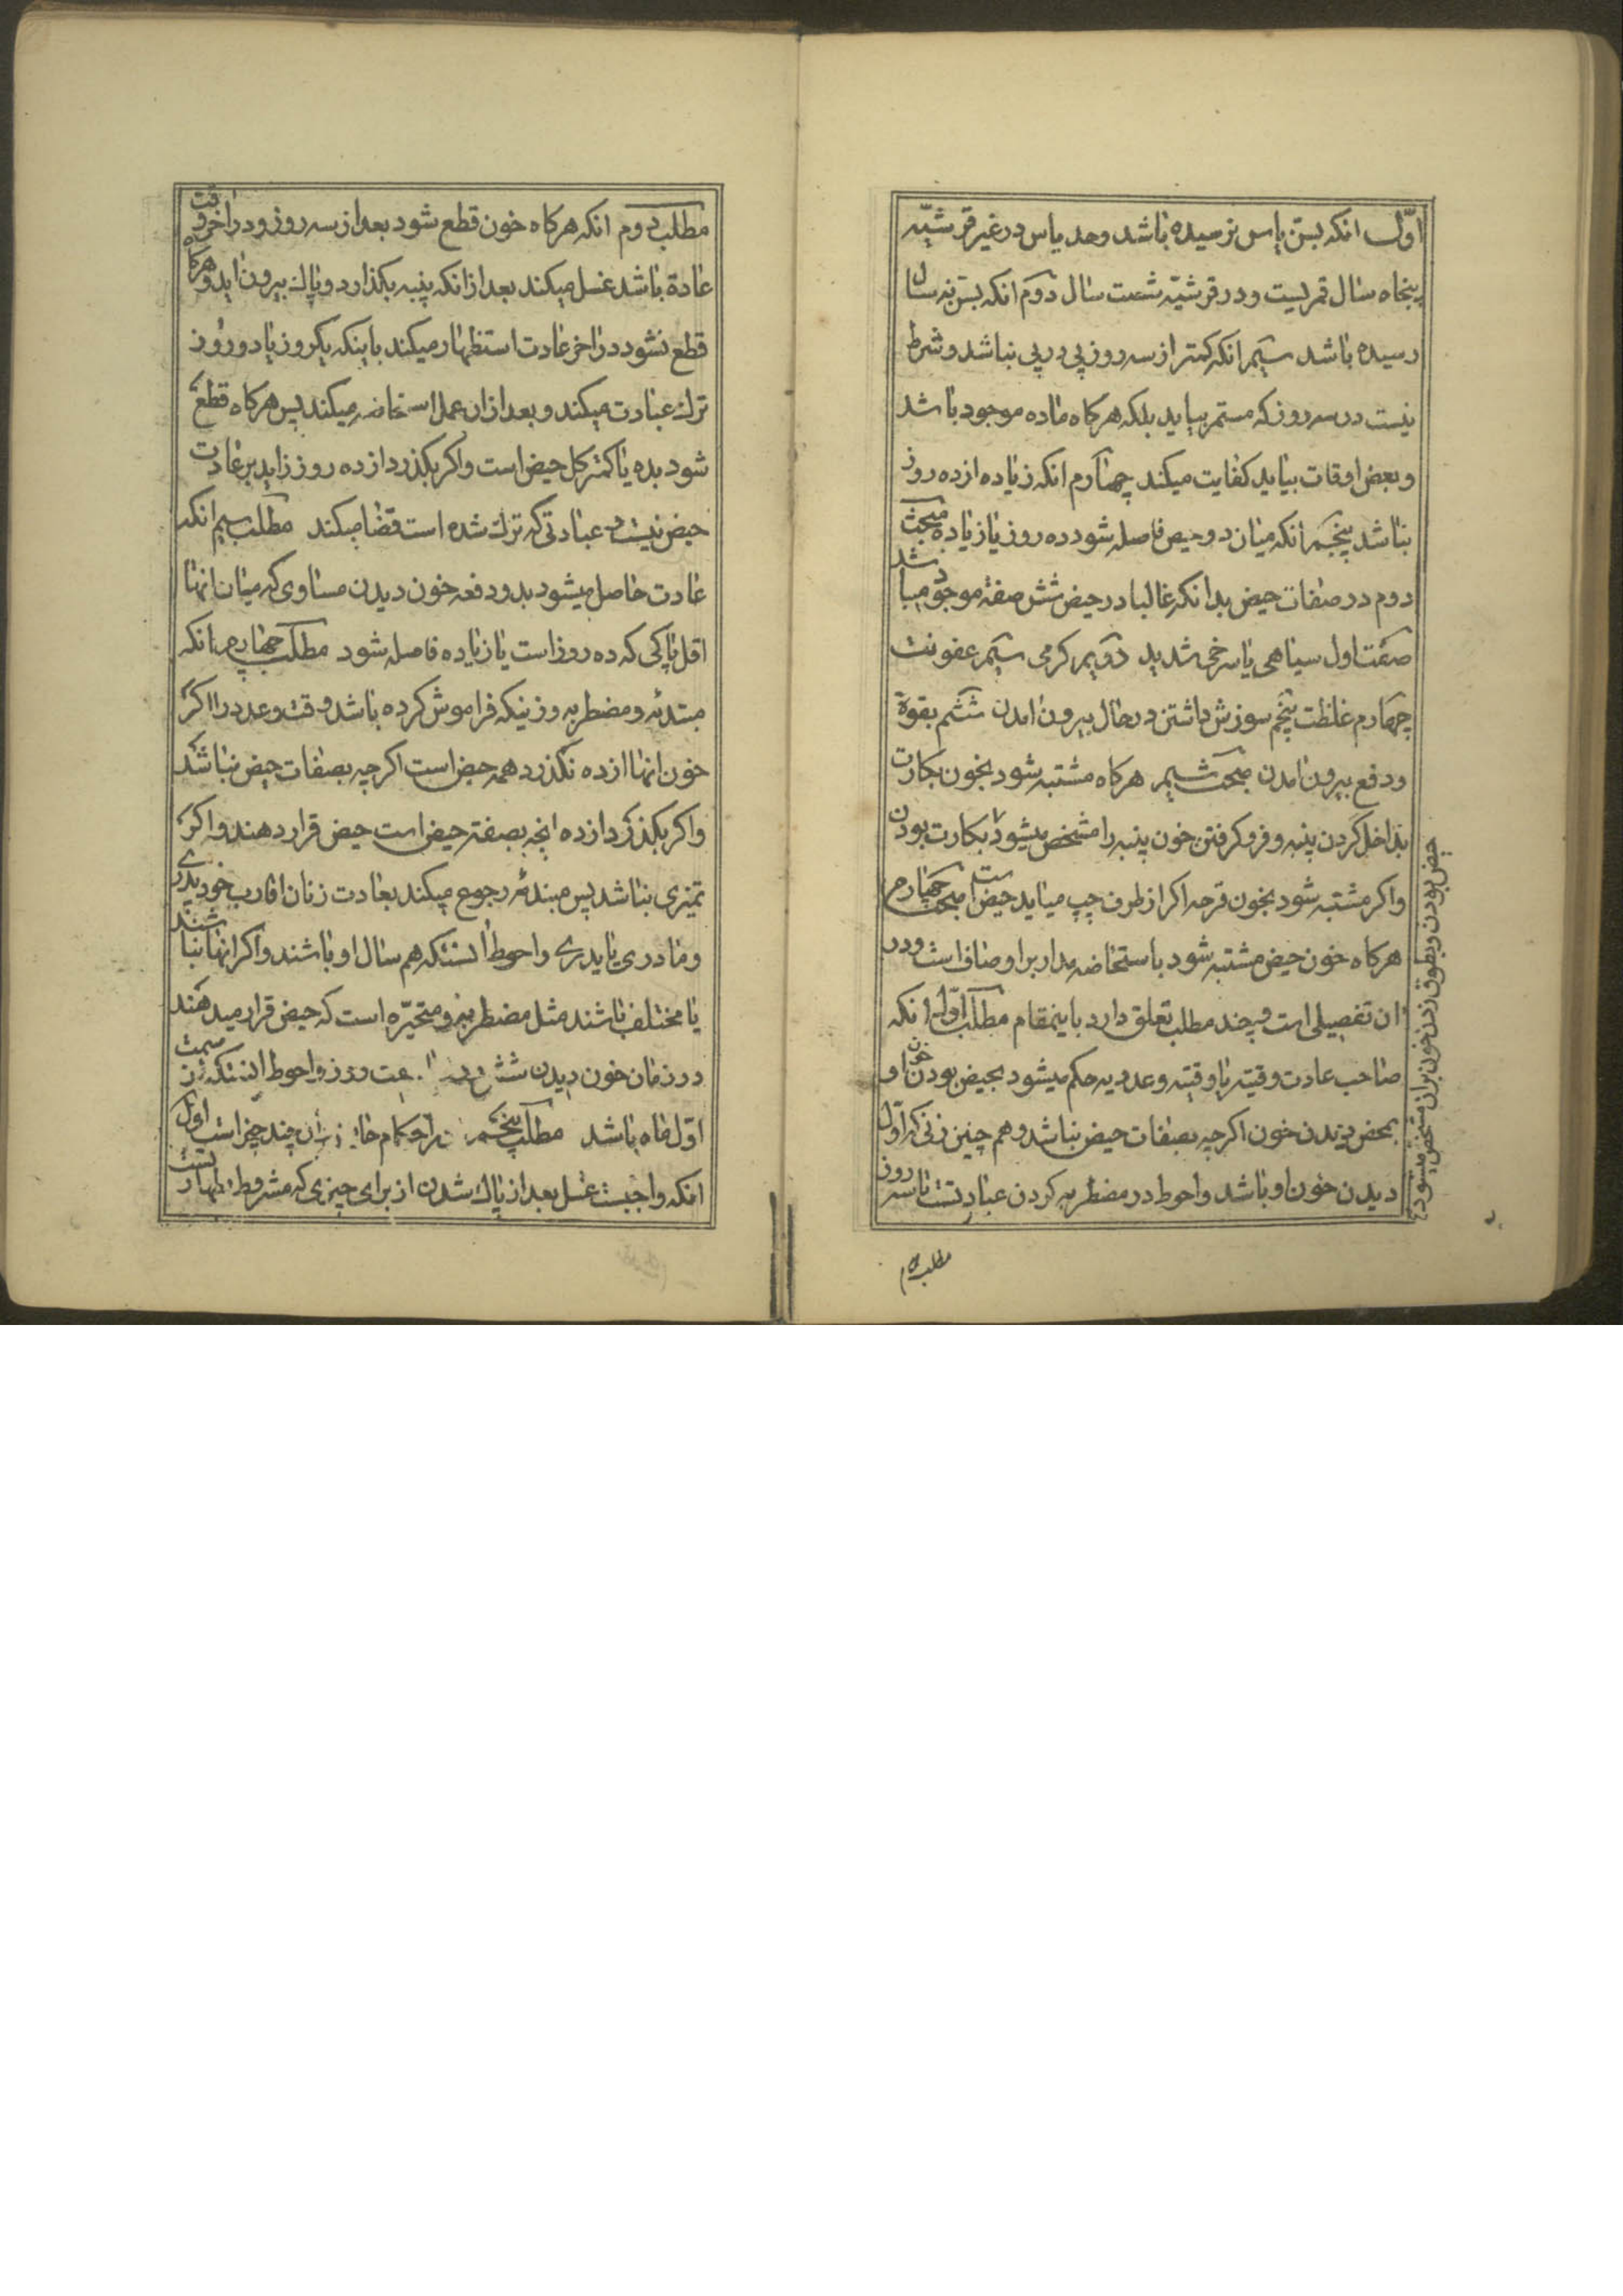 اوّل انکه بسنّ یاس نرسیده باشد وحد یاس در غیر قرشیّه
پنجاه سال قمریست ودر قرشیّه شصت سال دوّم انکه بسنّ نه سال
رسیده باشد سیّم انکه کمتر از سه روز پی در پی نباشد وشرط
نیست در سه روز که مستمر بیاید بلکه هرکاه ماده موجود باشد
وبعض اوقات بیاید کفایت میکند چهارم انکه زیاده از ده روز
نباشد پنجم انکه میان دو حیض فاصله شود ده روز یا زیاده مبحث
دوم در صفات حیض بدانکه غالبا در حیض شش صفة موجود میباشد
صفت اول سیاهی یا سرخی شدید دویم کرمی سیّم عفونت
چهارم غلظت پنجم سوزش داشتن در حال بیرون امدن ششم بقوة
ودفع بیرون امدن مبحث سیم هرکاه مشتبه شود بخون بکارت
بداخل کردن پنبه وفرو کرفتن خون پنبه را مشخص میشود بکارت بودن
واکر مشتبه شود بخون قرحه اکر از طرف چپ میاید حیض است مبحث چهارم
هرکاه خون حیض مشتبه شود باستحاضه مدار بر اوصاف است ودر
ان تفصیلی است وچند مطلب تعلق دارد باینمقام مطلب اوّل انکه
صاحب عادت وقتیه یا وقتیه وعددیه حکم میشود بحیض بودن خون او
بمحض دیدن خون اکرچه بصفات حیض نباشد وهم چنین زنی که اوّل
دیدن خون او باشد واحوط در مضطربه کردن عبادتست تا سه روز
حیض بودن وبطوق زدن خون بران مشخص میشود
مطلب دوم
مطلب دوم انکه هرکاه خون قطع شود بعد از سه روز ودر اخر وقت
عادة باشد غسل میکند بعد از انکه پنبه بکذارد وپاک بیرون اید وهرکاه
قطع نشود در اخر عادت استظهار میکند باینکه یکروز یا دو روز
ترک عبادت میکند وبعد از ان عمل استحاضه میکند پس هرکاه قطع
شود بده یا کمتر کل حیض است واکر بکذرد از ده روز زاید بر عادت
حیض نیست وعبادتی که ترک شده است قضا میکند مطلب سیم انکه
عادت حاصل میشود بدو دفعه خون دیدن مساوی که میان انها
اقل پاکی که ده روز است یا زیاده فاصله شود مطلب چهارم انکه
مبتدئه ومضطربه وزنیکه فراموش کرده باشد وقت وعدد را اکر
خون انها از ده نکذرد همه حیض است اکرچه بصفات حیض نباشد
واکر بکذرد از ده انچه بصفة حیض است حیض قرار دهند واکر
تمیزی نباشد پس مبتدئه رجوع میکند بعادت زنان اقارب خود پدری
ومادری یا پدری واحوط انستکه هم سال او باشند واکر انها نباشند
یا مختلف باشند مثل مضطربه ومتحیّره است که حیض قرار میدهند
در زمان خون دیدن شش روز یا هفت روز واحوط انستکه از سمت
اوّل ماه باشد مطلب پنجم در احکام حایض وان چند چیز است اوّل
انکه واجبست غسل بعد از پاک شدن از برای چیزی که مشروط بطهارتست